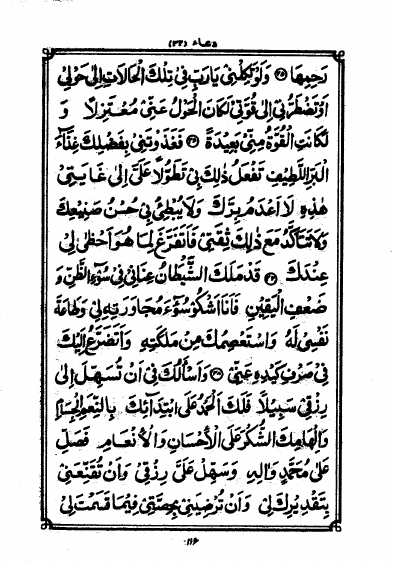 دعاء (۳۲)
رَحِمِهَا ﴿۲۵﴾ وَلَوْ تَكِلْنِي يَارَبِّ فِي تِلْكَ الْحَالَاتِ إِلَى حَوْلِي
أَوْ تَضْطَرُّنِي إِلَى قُوَّتِي لَكَانَ الْحَوْلُ عَنِّي مُعْتَزِلًا وَ
لَكَانَتِ الْقُوَّةُ مِنِّي بَعِيدَةً ﴿۲۶﴾ فَغَذَوْتَنِي بِفَضْلِكَ غِذَآءَ
الْبَرِّ اللَّطِيفِ تَفْعَلُ ذٰلِكَ بِي تَطَوُّلًا عَلَيَّ إِلَى غَايَتِي
هٰذِهِ لَا أَعْدَمُ بِرَّكَ وَلَا يُبْطِئُ بِي حُسْنُ صَنِيعِكَ
وَلَا تَتَأَكَّدُ مَعَ ذٰلِكَ ثِقَتِي فَأَتَفَرَّغَ لِمَا هُوَ أَحْظٰى لِي
عِنْدَكَ ﴿۲۷﴾ قَدْ مَلَكَ الشَّيْطَانُ عِنَانِي فِي سُوٓءِ الظَّنِّ وَ
ضَعْفِ الْيَقِينِ فَأَنَا أَشْكُو سُوٓءَ مُجَاوَرَتِهِ لِي وَطَاعَةَ
نَفْسِي لَهُ وَأَسْتَعْصِمُكَ مِنْ مَلَكَتِهِ وَأَتَضَرَّعُ إِلَيْكَ
فِي صَرْفِ كَيْدِهِ عَنِّي ﴿۲۸﴾ وَأَسْأَلُكَ فِي أَنْ تُسَهِّلَ إِلَى
رِزْقِي سَبِيلًا فَلَكَ الْحَمْدُ عَلَى ابْتِدَائِكَ بِالنِّعَمِ الْجِسَامِ
وَإِلْهَامِكَ الشُّكْرَ عَلَى الْإِحْسَانِ وَالْإِنْعَامِ فَصَلِّ
عَلٰى مُحَمَّدٍ وَاٰلِهِ وَسَهِّلْ عَلَيَّ رِزْقِي وَأَنْ تُقَنِّعَنِي
بِتَقْدِيرِكَ لِي وَأَنْ تُرْضِيَنِي بِحِصَّتِي فِيمَا قَسَمْتَ لِي